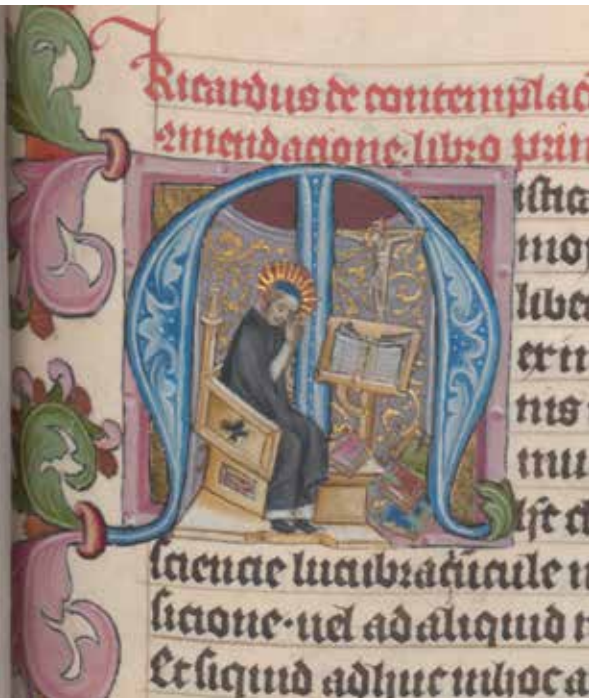 Ricardus de contemplac
emendacione·libro prim
Mistica
moy
libet
ex in
nis
mu
h̄t cl
sciencie lucubratiūcule n
sicione·uel ad aliquid r
Et siquid adhuc in hoc a